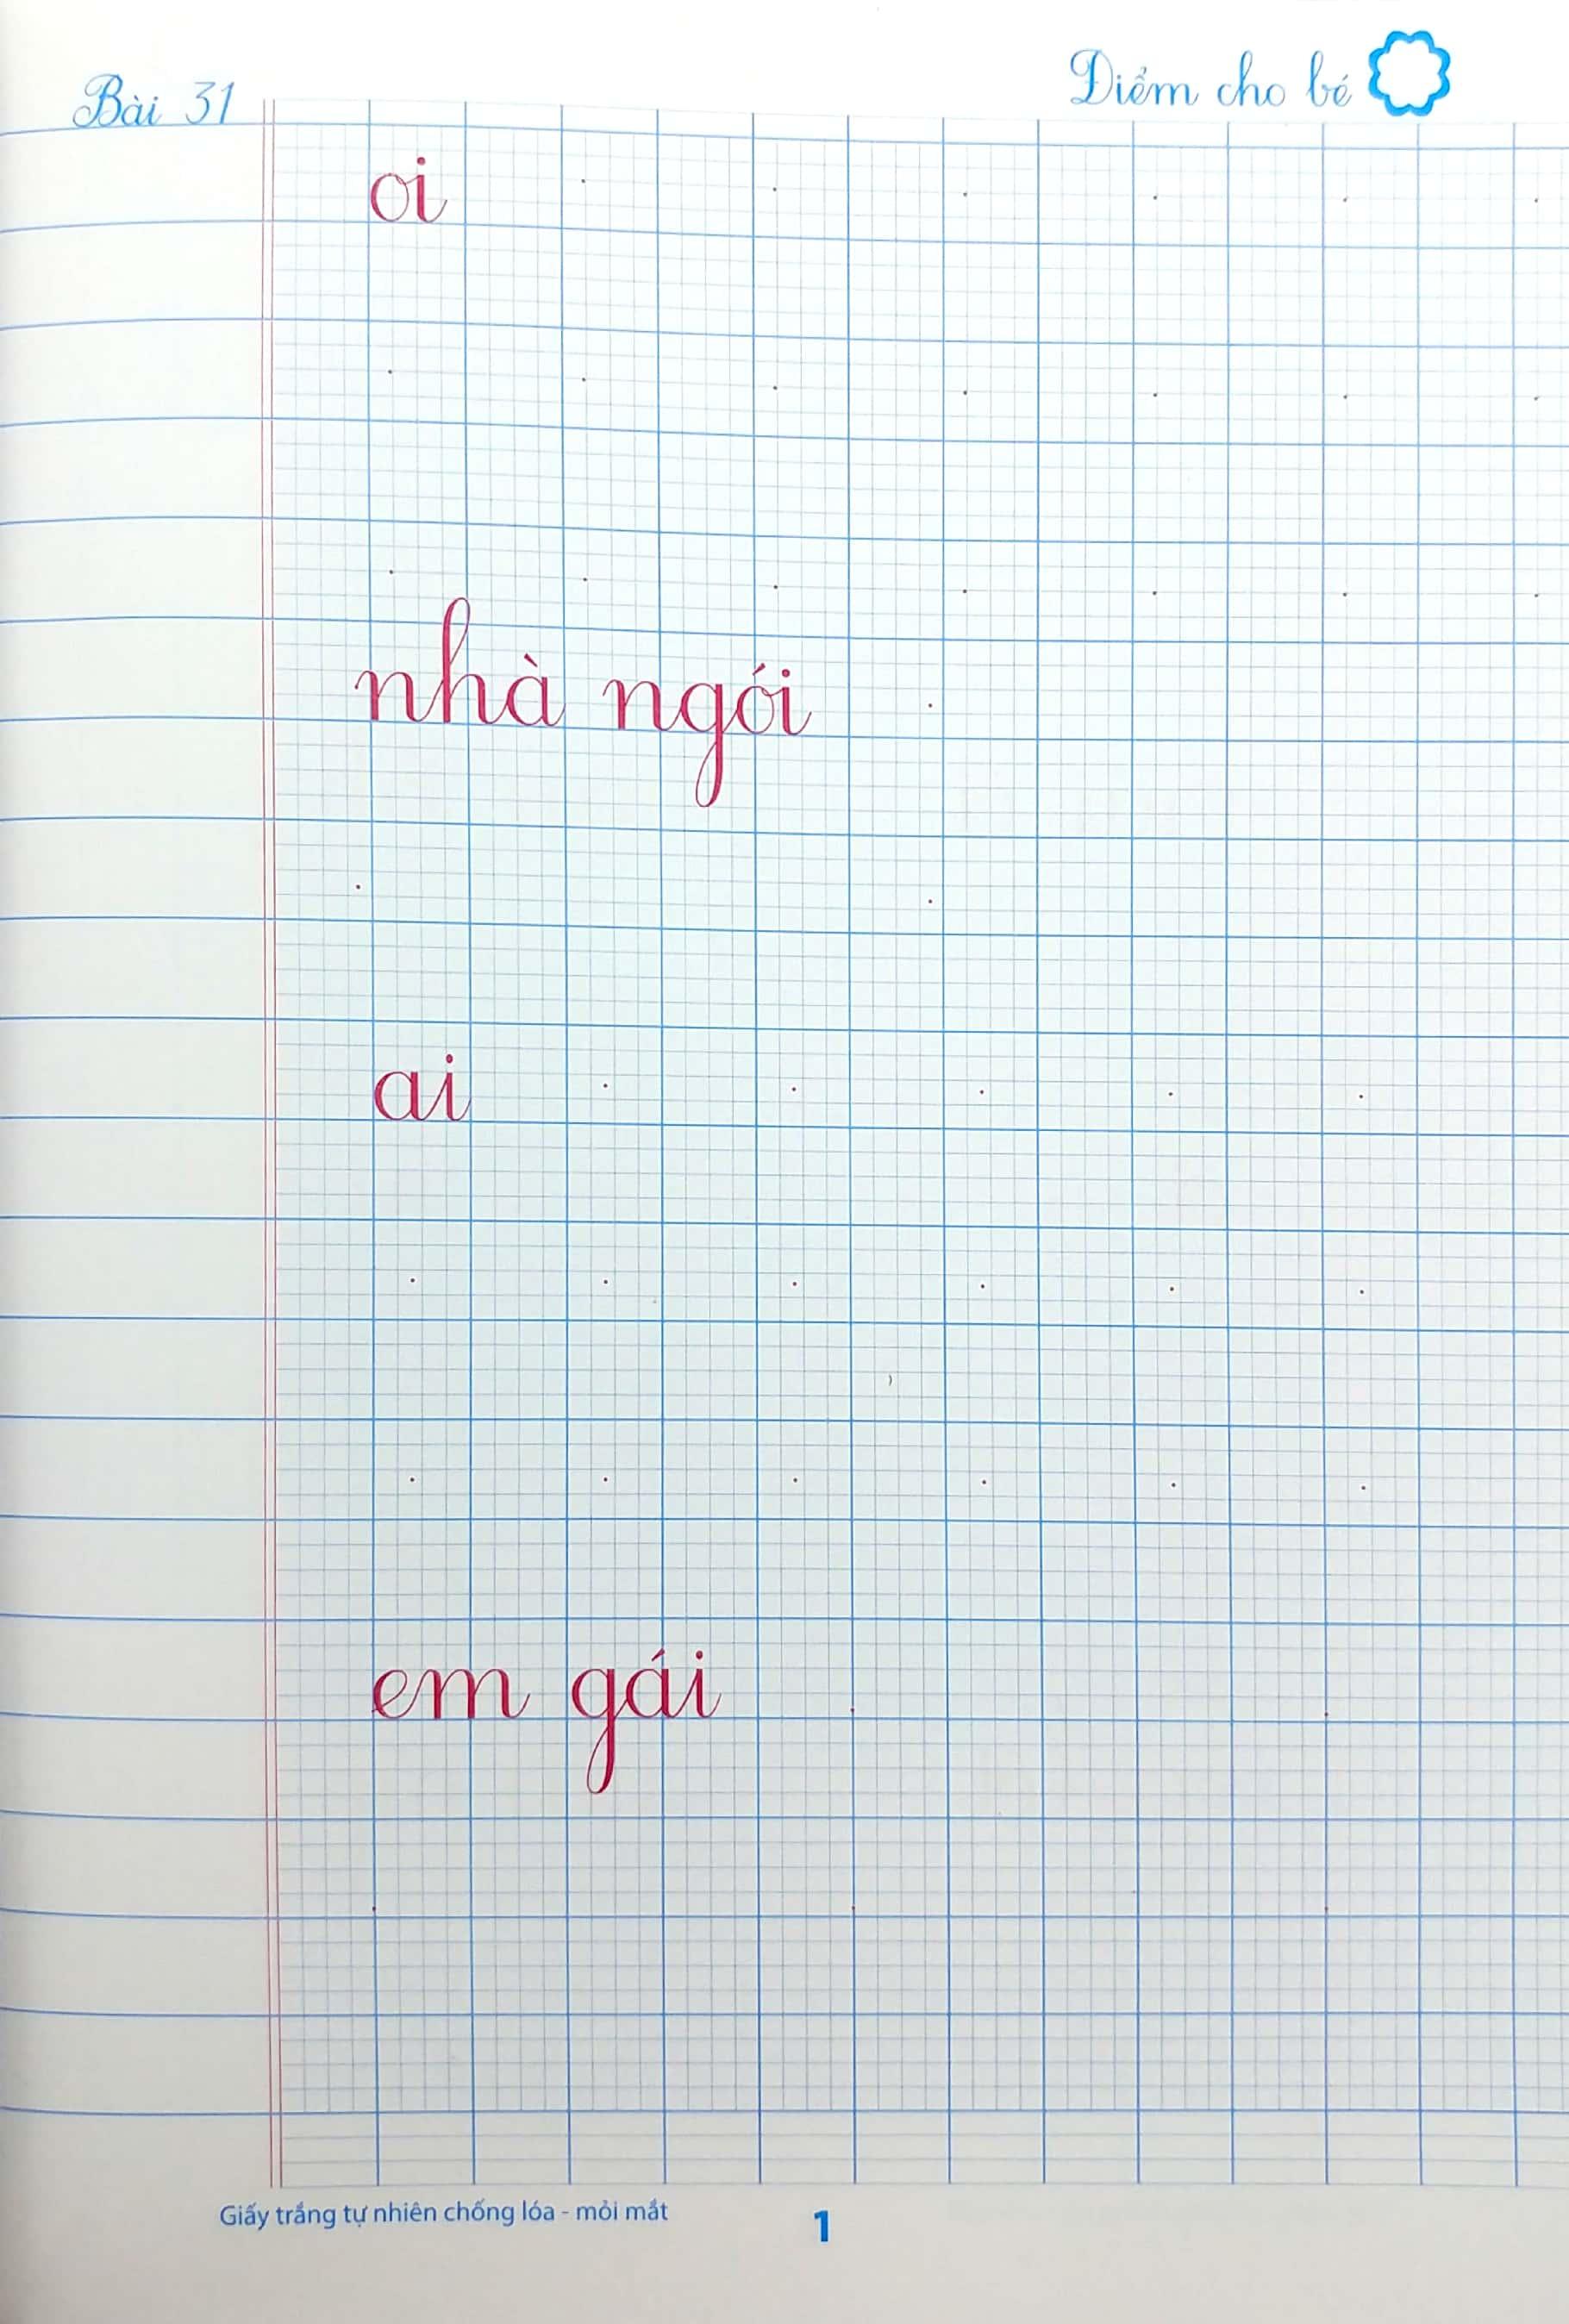 Bài 31
Điểm cho bé
oi
nhà ngói
ai
em gái
Giấy trắng tự nhiên chống lóa - mỏi mắt
1